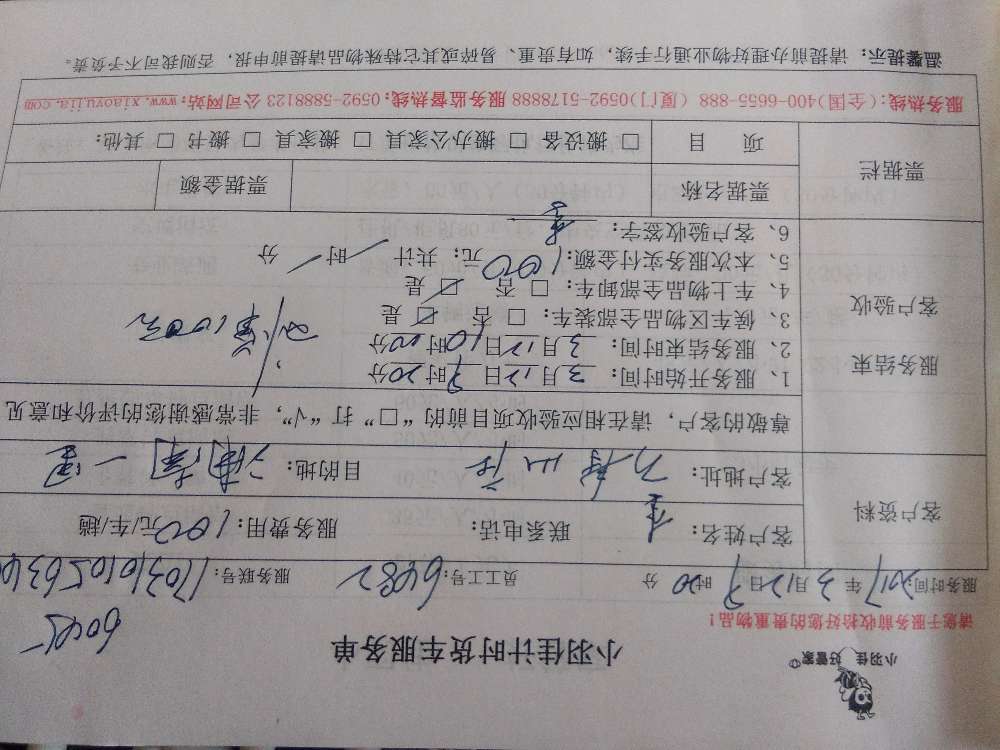 小羽佳 好管家
小羽佳计时货车服务单
6045
请您于服务前收拾好您的贵重物品！
服务时间：2017年3月12日 时20分 员工号：6482 服务联号：
客户资料
客户姓名： 联系电话： 服务费用：100元/车/趟
客户地址： 目的地：
尊敬的客户，请在相应验收项目前的“□”打“√”，非常感谢您的评价和意见
服务结束
客户验收
1、服务开始时间：3月12日9时20分
2、服务结束时间：3月12日10时20分
3、候车区物品全部装车：□ 否 □ 是
4、车上物品全部卸车：□ 否 □ 是
5、本次服务实付金额：100元；共计 时 分
6、客户验收签字：
100元
票据栏
票据名称 票据金额
项 目 □ 搬设备 □ 搬办公家具 □ 搬家具 □ 搬书 □ 其他：
服务热线：(全国)400-6655-888 (厦门)0592-5178888 服务监督热线：0592-5888123 公司网站：www.xiaoyujia.com
温馨提示：请提前办理好物业通行手续，如有贵重、易碎或其它特殊物品请提前申报，否则我司不予负责。